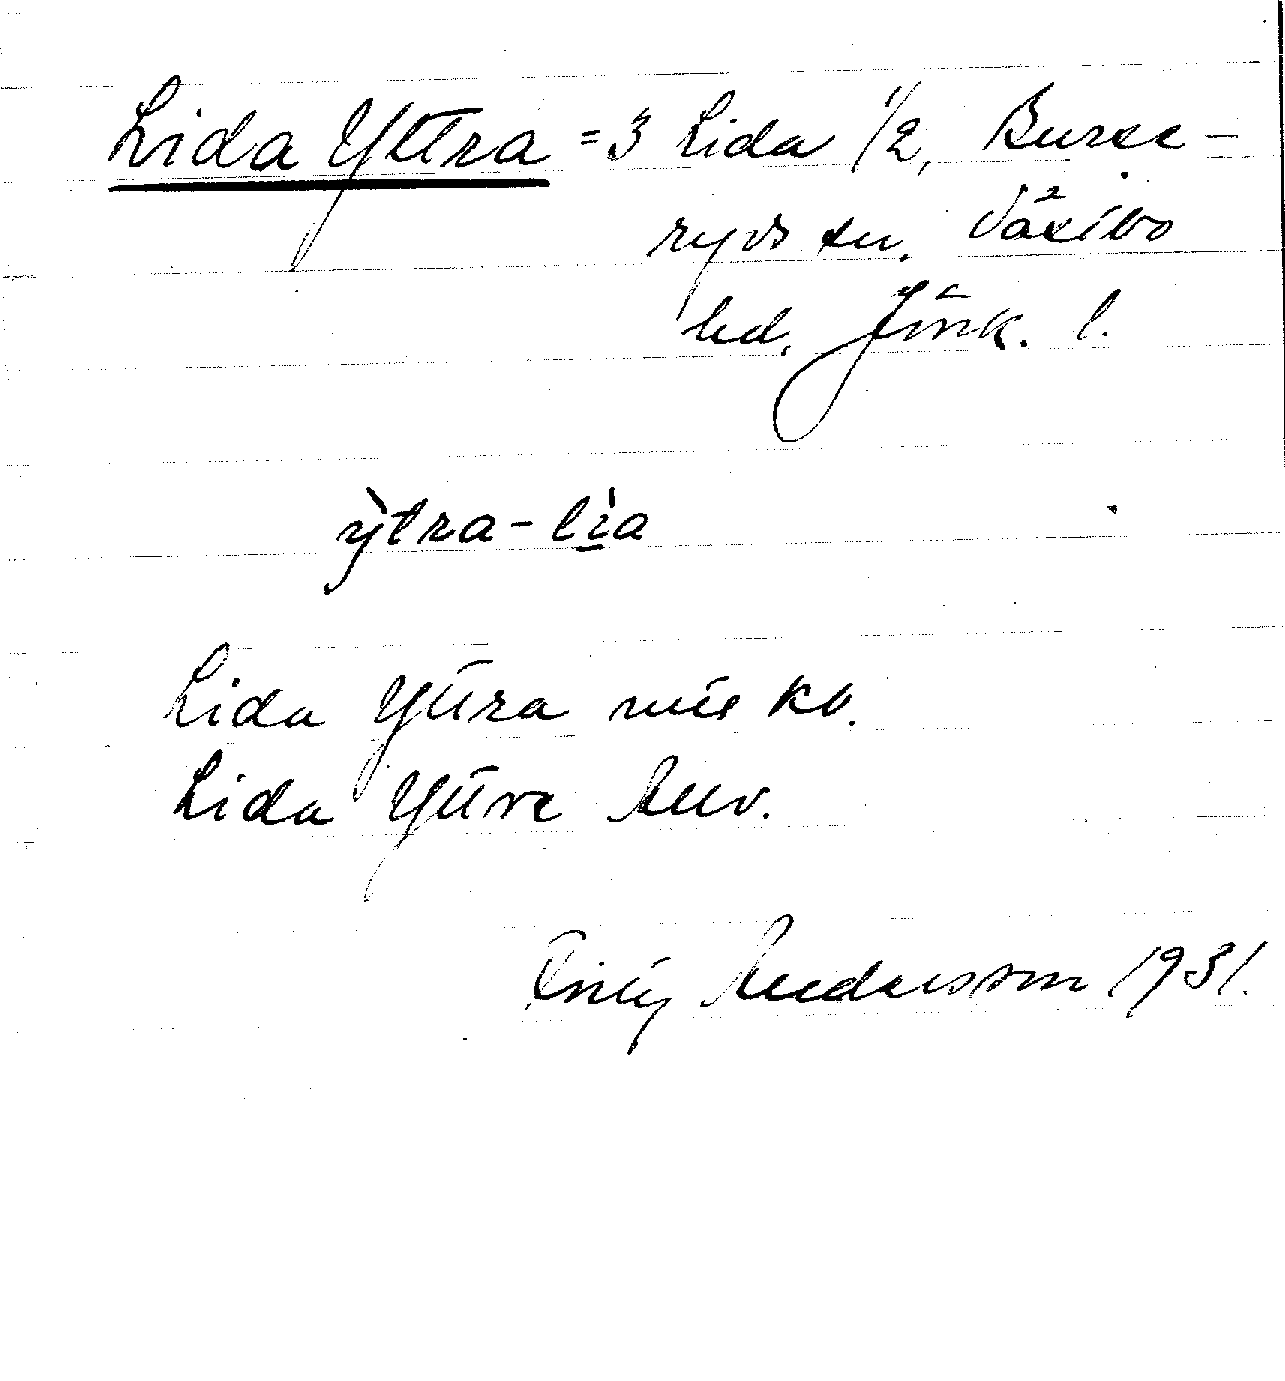 Lida Yttra = 3 Lida 1/2, Burse-
ryds sn. Västbo
hd. Jönk. l.
ỳtra-lìa
Lida Yttra
Lida Yttre
Andersson 1931.